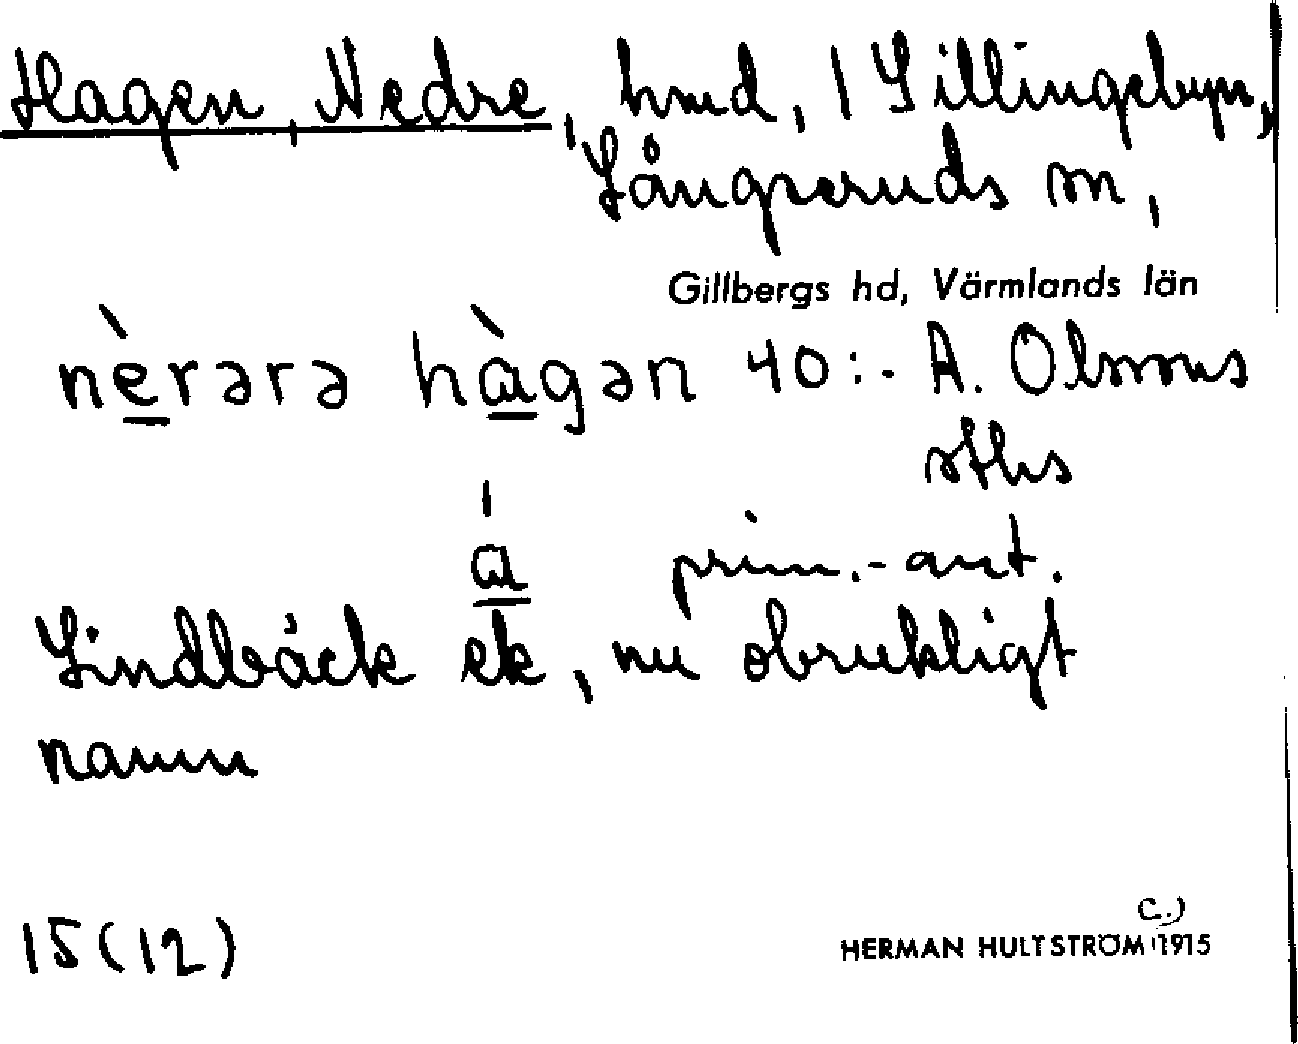 Hagen, Nedre, hmd, 1 Lillingebyn,
Långseruds sn,
Gillbergs hd, Värmlands län
nè̱rərə hà̱gən 40:- A. Olssons
sthss
á̱ prim.-ant.
Lindbäck ek, nu obrukligt
namn
15(12)
C.)
HERMAN HULTSTRÖM 1915